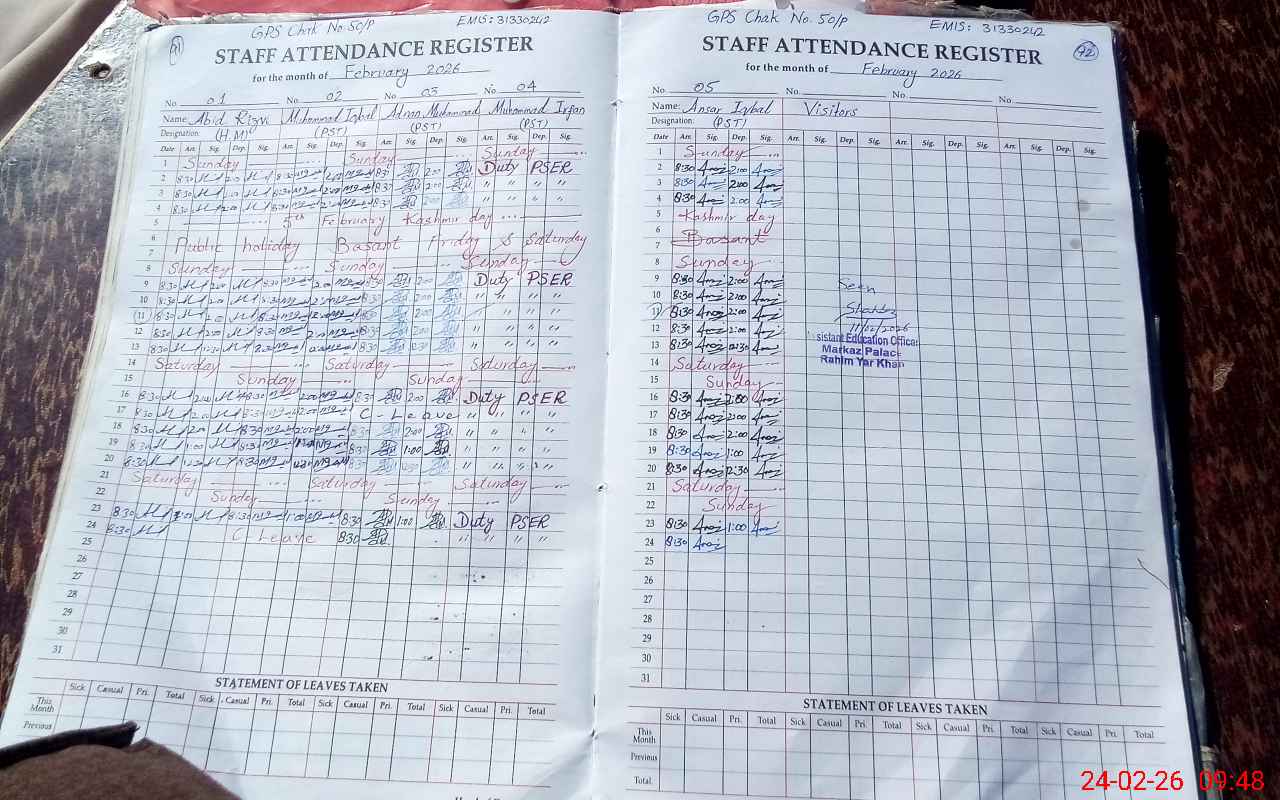 91
GPS Chak No. 50/P EMIS: 31330242
STAFF ATTENDANCE REGISTER
for the month of February 2026
No. 01 No. 02 No. 03 No. 04
Name: Abid Rizvi Muhammad Iqbal Adnan Muhammad Muhammad Irfan
Designation: (H.M) (PST) (PST) (PST)
Date Arr. Sig. Dep. Sig. Arr. Sig. Dep. Sig. Arr. Sig. Dep. Sig. Arr. Sig. Dep. Sig.
1 Sunday Sunday Sunday
2 8:30 2:00 8:30 2:00 8:30 2:00 Duty PSER
3 8:30 2:00 8:30 2:00 8:30 2:00 " " " "
4 8:30 2:00 8:30 2:00 8:30 2:00 " " " "
5 5th February Kashmir day
6
7 Public holiday Basant Friday & Saturday
8 Sunday Sunday Sunday
9 8:30 2:00 8:30 2:00 8:30 2:00 Duty PSER
10 8:30 2:00 8:30 2:00 8:30 2:00 " " " "
11 8:30 2:00 8:30 2:00 8:30 2:00 " " " "
12 8:30 2:00 8:30 2:00 8:30 2:00 " " " "
13 8:30 12:30 8:30 8:30 12:30 " " " "
14 Saturday Saturday Saturday
15 Sunday Sunday
16 8:30 2:00 8:30 2:00 8:30 2:00 Duty PSER
17 8:30 2:00 8:30 2:00 C - Leave " " " "
18 8:30 2:00 8:30 2:00 8:30 2:00 " " " "
19 8:30 1:00 8:30 8:30 1:00 " " " "
20 8:30 12:30 8:30 12:30 8:30 12:30 " " " "
21 Saturday Saturday Saturday
22 Sunday Sunday
23 8:30 8:30 1:00 8:30 1:00 Duty PSER
24 8:30 C Leave 8:30 " " " "
25
26
27
28
29
30
31
STATEMENT OF LEAVES TAKEN
Sick Casual Pri. Total Sick Casual Pri. Total Sick Casual Pri. Total Sick Casual Pri. Total
This Month
Previous
92
GPS Chak No. 50/P EMIS: 31330242
STAFF ATTENDANCE REGISTER
for the month of February 2026
No. 05 No. No. No.
Name: Ansar Iqbal Visitors
Designation: (PST)
Date Arr. Sig. Dep. Sig. Arr. Sig. Dep. Sig. Arr. Sig. Dep. Sig. Arr. Sig. Dep. Sig.
1 Sunday
2 8:30 2:00
3 8:30 2:00
4 8:30 2:00
5 Kashmir day
6
7 Basant
8 Sunday
9 8:30 2:00
10 8:30 2:00
11 8:30 2:00
12 8:30 2:00
13 8:30 12:30
14 Saturday
15 Sunday
16 8:30 2:00
17 8:30 2:00
18 8:30 2:00
19 8:30 1:00
20 8:30 12:30
21 Saturday
22 Sunday
23 8:30 1:00
24 8:30
25
26
27
28
29
30
31
Seen
11/02/2026
Assistant Education Officer
Markaz Palace
Rahim Yar Khan
STATEMENT OF LEAVES TAKEN
Sick Casual Pri. Total Sick Casual Pri. Total Sick Casual Pri. Total Sick Casual Pri. Total
This Month
Previous
Total
24-02-26 09:48